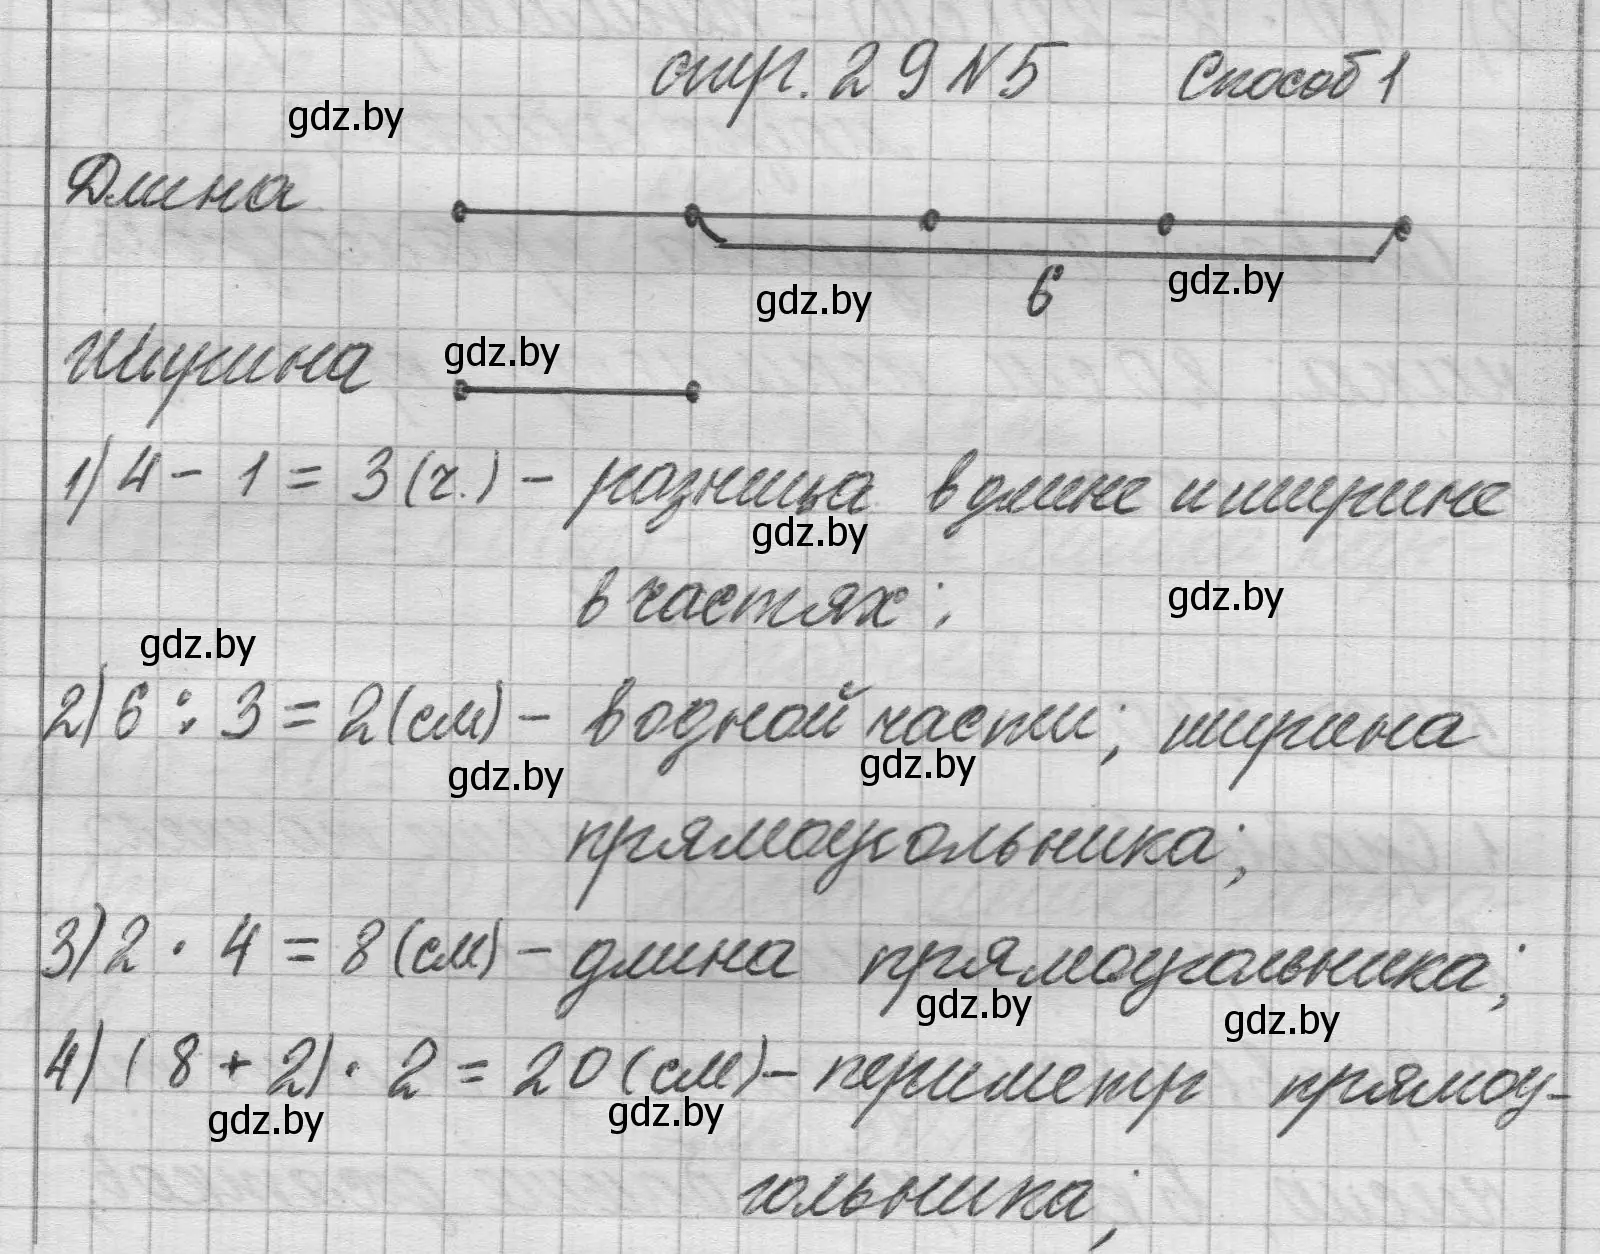 стр. 29 №5 Способ 1
gdz.by
Длина
6
gdz.by
gdz.by
Ширина
gdz.by
1) 4 - 1 = 3 (ч.) - разница в длине и ширине
gdz.by
в частях;
gdz.by
gdz.by
2) 6 : 3 = 2 (см) - в одной части; ширина
gdz.by
gdz.by
прямоугольника;
3) 2 · 4 = 8 (см) - длина прямоугольника;
gdz.by
gdz.by
4) (8 + 2) · 2 = 20 (см) - периметр прямоу-
gdz.by
gdz.by
гольника;